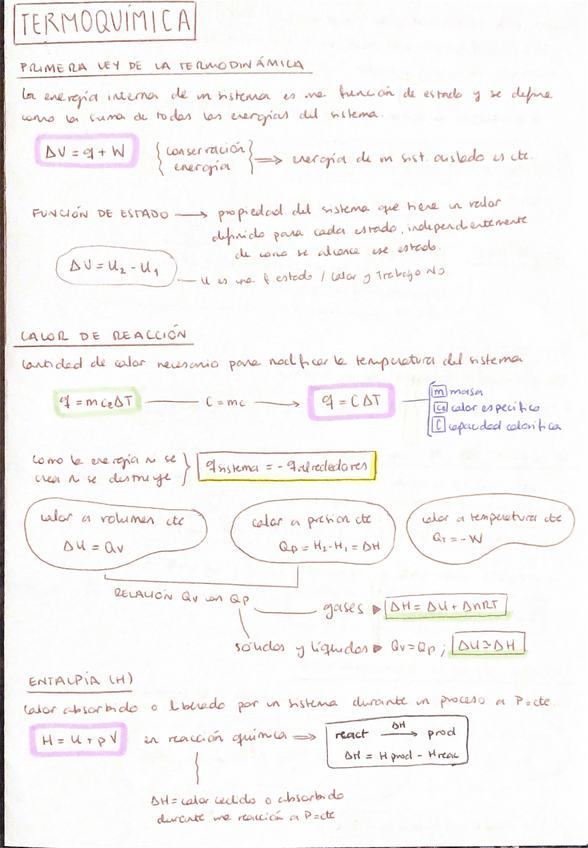 TERMOQUÍMICA
PRIMERA LEY DE LA TERMODINÁMICA
La energía interna de un sistema es una función de estado y se define
como la suma de todas las energías del sistema.
ΔU = q + W { conservación energía } ⟹ energía de un sist. aislado es cte.
FUNCIÓN DE ESTADO → propiedad del sistema que tiene un valor
definido para cada estado, independientemente
de como se alcance ese estado.
ΔU = U₂ - U₁
U es una f estado / Calor y Trabajo NO.
CALOR DE REACCIÓN
Cantidad de calor necesario para modificar la temperatura del sistema
q = m cₑ ΔT — C = mc → q = C ΔT
m masa
ce calor específico
C capacidad calorífica
como la energía ni se
crea ni se destruye } q sistema = - q alrededores
calor a volumen cte
ΔU = Qv
calor a presión cte
Qp = H₂ - H₁ = ΔH
calor a temperatura cte
QT = -W
RELACIÓN Qv con Qp
gases ▶ ΔH = ΔU + ΔnRT
sólidos y líquidos ▶ Qv = Qp ; ΔU ≃ ΔH
ENTALPÍA (H)
Calor absorbido o liberado por un sistema durante un proceso a P=cte.
H = U + pV en reacción química ⟹ react —ΔH→ prod
ΔH = H prod - H reac
ΔH = calor cedido o absorbido
durante una reacción a P=cte